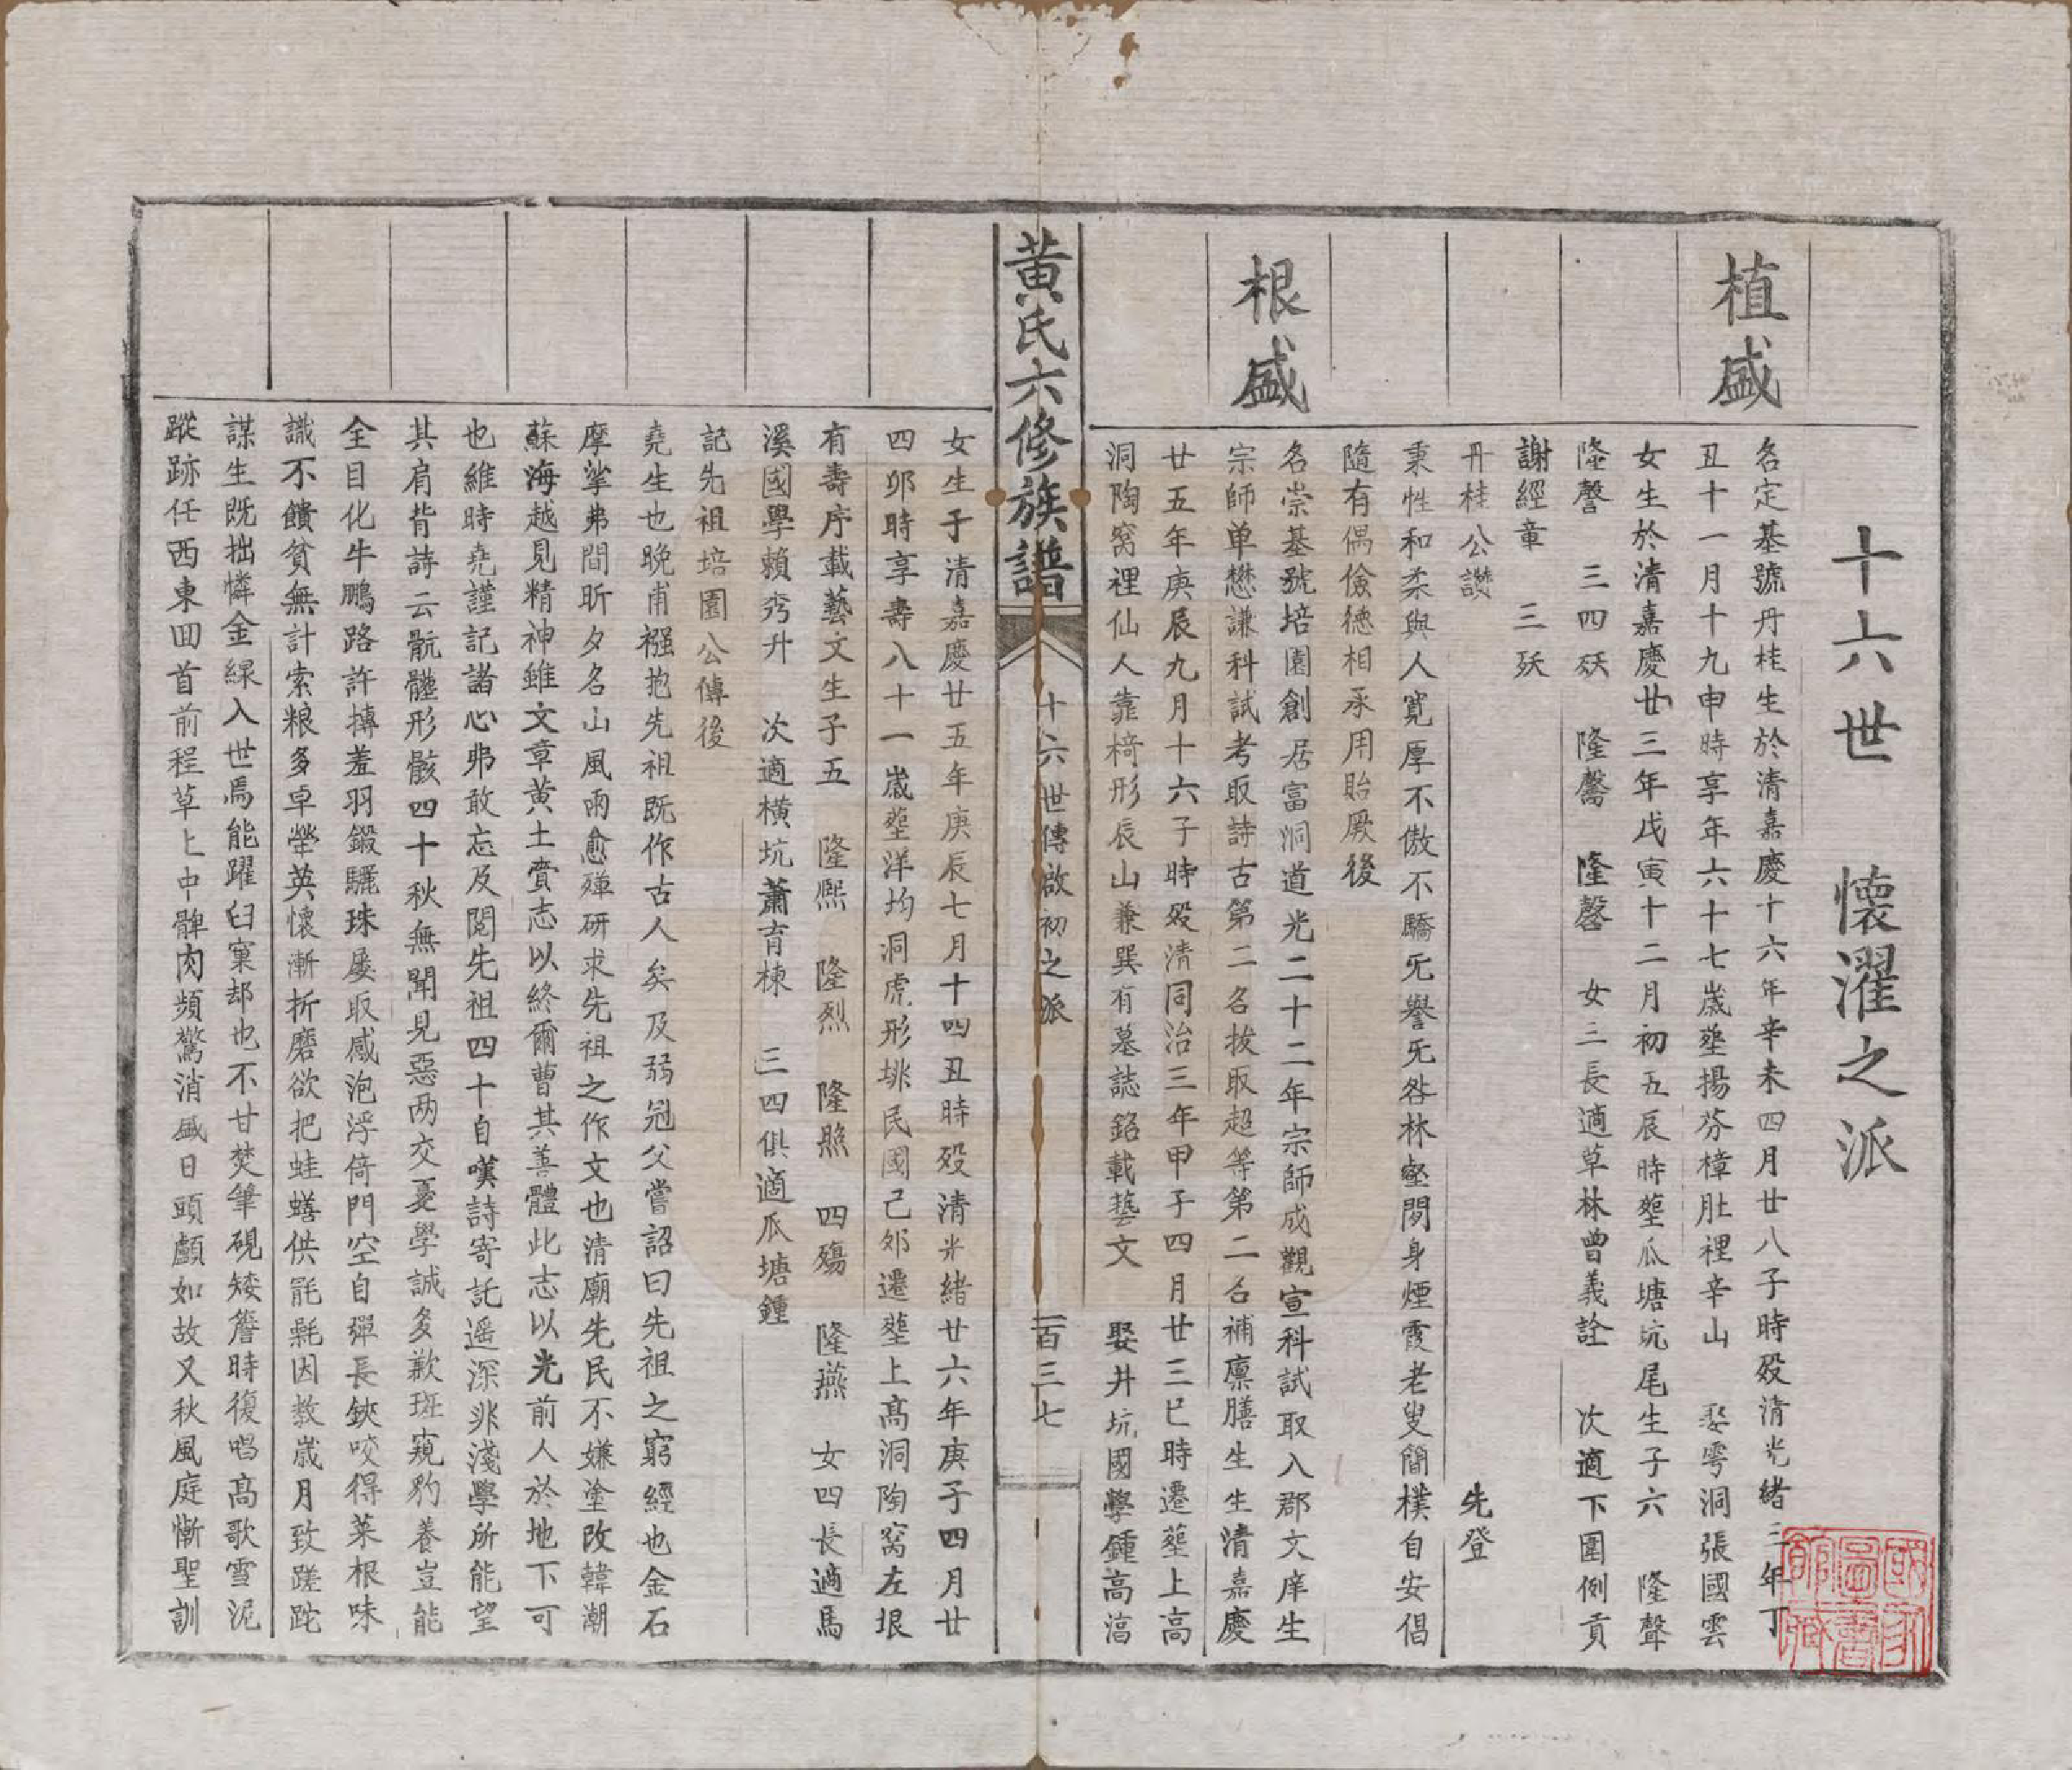 十六世　懷濯之派
植盛
名定基號丹桂生於清嘉慶十六年辛未四月廿八子時歿清光緒三年丁
丑十一月十九申時享年六十七歲塟揚芬樟肚裡辛山　娶雩洞張國雲
女生於清嘉慶廿三年戊寅十二月初五辰時塟瓜塘坑尾生子六　隆聲
隆謦　三四殀　隆䯨　隆磬　女三長適草林曾義詮　次適下圍例貢
謝經章　三殀
丹桂公讚　先登
秉性和柔與人寬厚不傲不驕旡譽旡咎林壑閒身煙霞老叟簡樸自安倡
隨有偶儉德相承用貽厥後
根盛
名崇基號培園創居富洞道光二十二年宗師成觀宣科試取入郡文庠生
宗師单懋謙科試考取詩古第二名拔取超等第二名補廪膳生生清嘉慶
廿五年庚辰九月十六子時歿清同治三年甲子四月廿三巳時遷塟上高
洞陶窩裡仙人靠椅形辰山兼巽有墓誌銘載藝文　娶井坑國學鍾高滈
黄氏六修族譜
十六世傳啟初之派
一百三七
女生于清嘉慶廿五年庚辰七月十四丑時歿清光緒廿六年庚子四月廿
四卯時享壽八十一歲塟洋均洞虎形排民國己卯遷塟上高洞陶窩左垠
有壽序載藝文生子五　隆熙　隆烈　隆照　四殤　隆燕　女四長適馬
溪國學賴秀升　次適橫坑蕭育棟　三四俱適瓜塘鍾
記先祖培園公傳後
堯生也晚甫襁抱先祖既作古人矣及弱冠父嘗詔曰先祖之窮經也金石
摩挲弗間昕夕名山風雨愈殫研求先祖之作文也清廟先民不嫌塗改韓潮
蘇海越見精神雖文章黄土賫志以終爾曹其善體此志以光前人於地下可
也維時堯謹記諸心弗敢忘及閱先祖四十自嘆詩寄託遥深非淺學所能望
其肩背詩云骯髒形骸四十秋無聞見惡两交憂學誠多歉斑窺豹養豈能
全目化牛鵬路許摶羞羽鎩驪珠屡取感泡浮倚門空自彈長鋏咬得菜根味
識不饋貧無計索粮多卓犖英懷漸折磨欲把蛙蟮供氈毾因教歲月致蹉跎
謀生既拙憐金線入世焉能躍臼窠却也不甘焚筆硯矮簷時復唱高歌雪泥
蹤跡任西東回首前程草上中髀肉頻驚消盛日頭顱如故又秋風庭慚聖訓